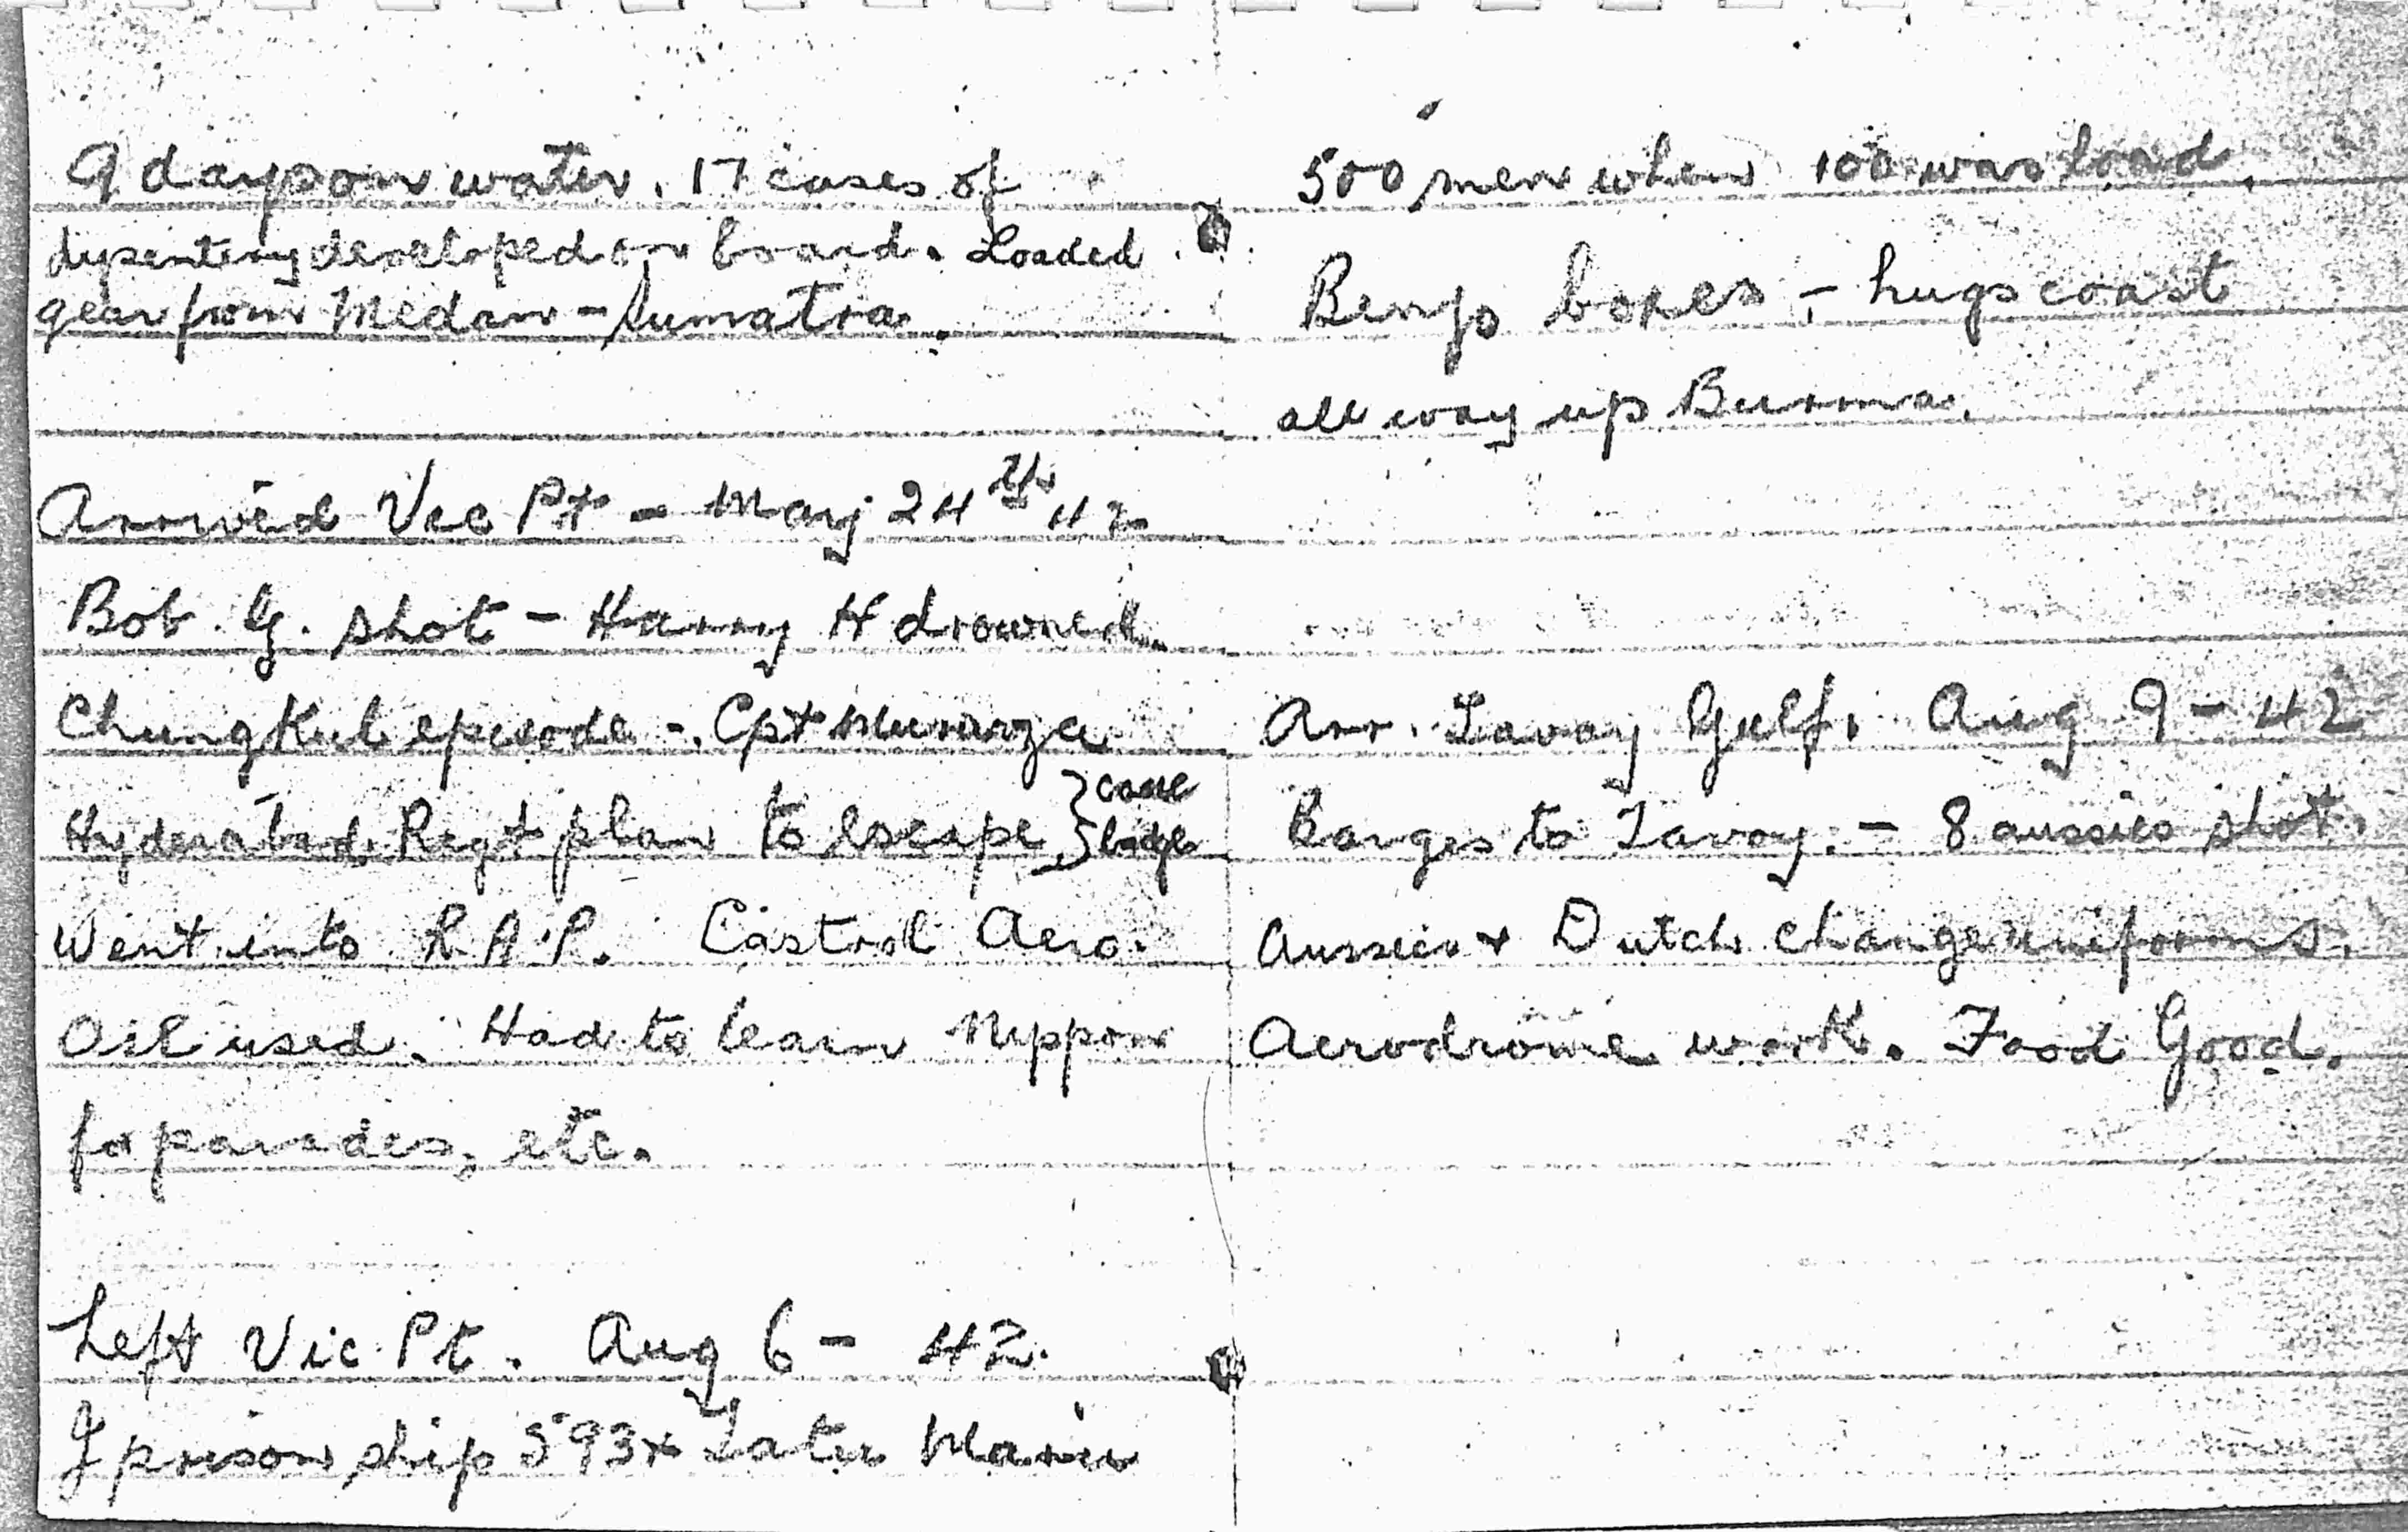 9 days on water. 17 cases of
dysentery developed on board. Loaded
gear from Medan - Sumatra.
Arrived Vic Pt - May 24th 42
Bob. G. shot - Harry H drowned.
Chung Kub episode - Cpt
Hyderabad Regt plan to escape } cane
lodge
Went into R.A.P. Castrol Aero.
Oil used. Had to learn Nippon
for parades, etc.
Left Vic. Pt. Aug 6 - 42.
J prison ship 593 Tatu Maru
500 men when 100 was load.
Benjo boxes - hugs coast
all way up Burma.
Arr. Tavoy Gulf. Aug 9 - 42
Barges to Tavoy. - 8 aussies shot.
Aussies + Dutch change uniforms.
Aerodrome work. Food Good.